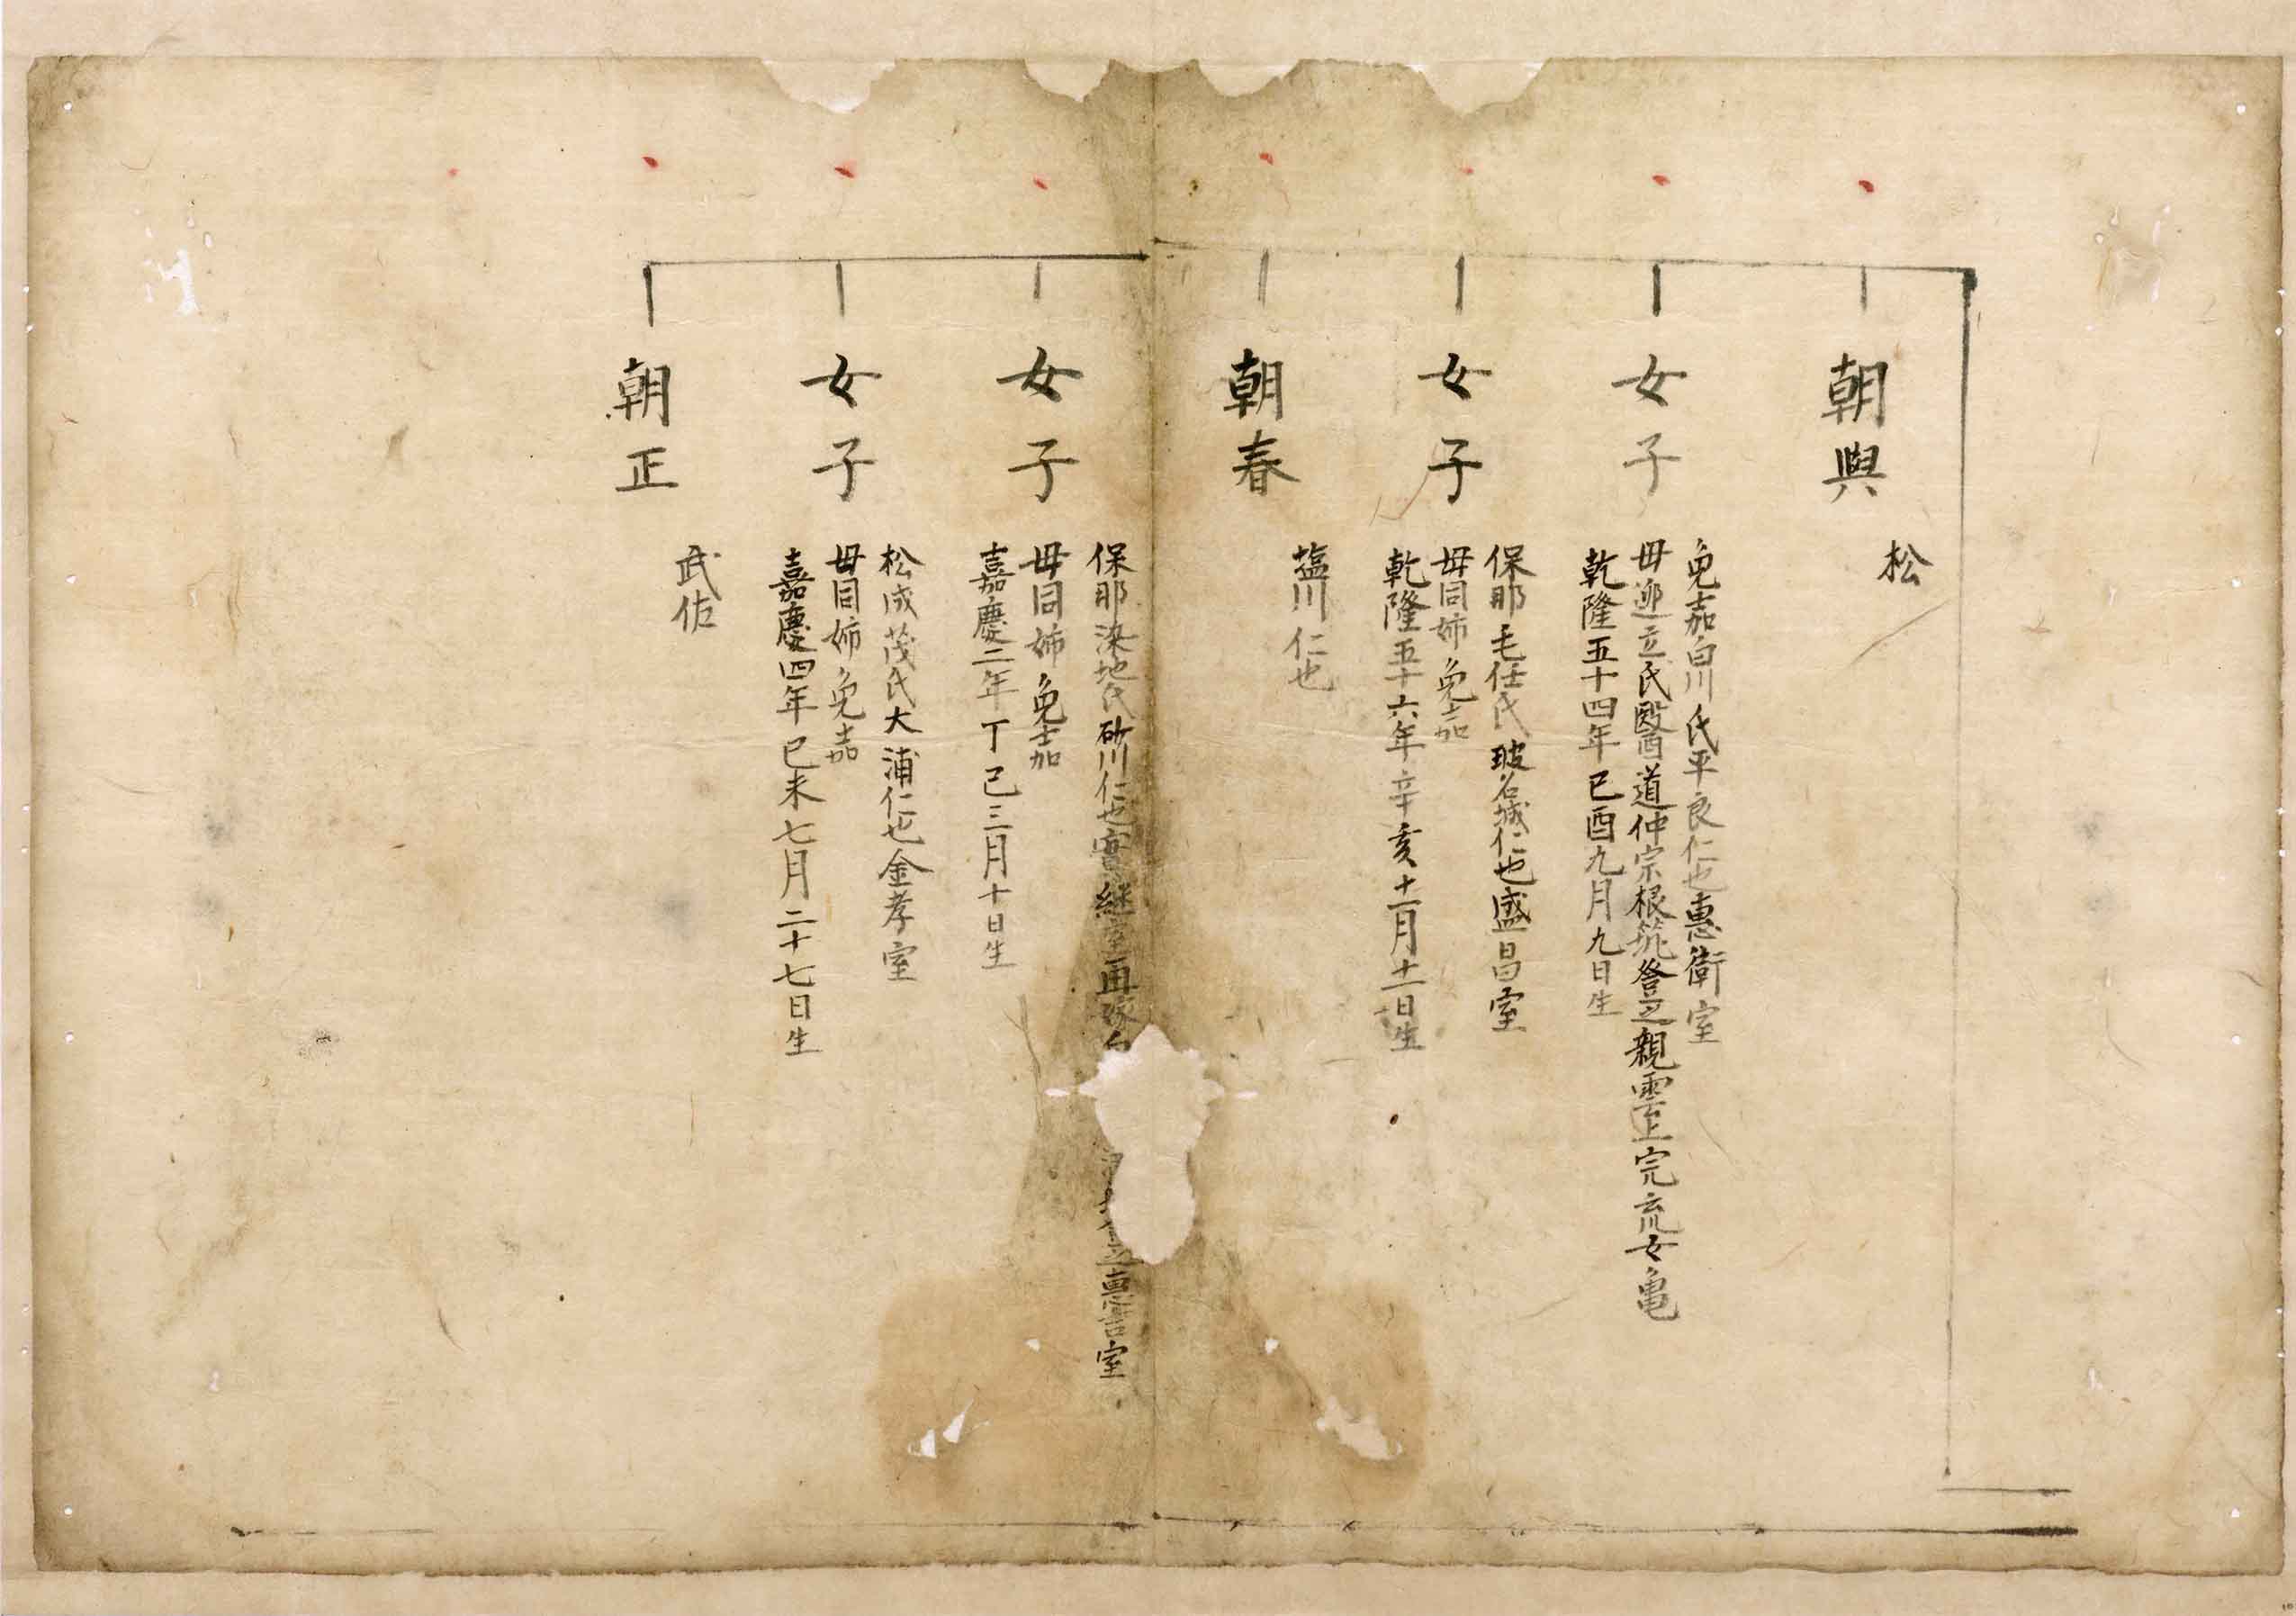 朝興
松
女子
免嘉白川氏平良仁也惠衛室
母迎立氏醫道仲宗根筑登之親雲上完流女亀
乾隆五十四年己酉九月九日生
女子
保那毛任氏玻名城仁也盛昌室
母同姉免嘉
乾隆五十六年辛亥十一月十一日生
朝春
塩川仁也
女子
保那染地氏砂川仁也寛継室再嫁白
惠書室
母同姉免嘉
嘉慶二年丁巳三月十日生
女子
松成茂氏大浦仁也金孝室
母同姉免嘉
嘉慶四年己未七月二十七日生
朝正
武佐